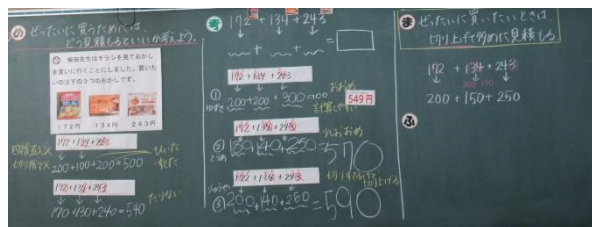 の ぜったいに買うためには、
どう見積もるといいか考えよう。
柴田先生はチラシを見ておかし
を買いに行くことにしました。買いた
いのは下の3つのおかしです。
172円 134円 243円
172+134+243
四捨五入×
切り捨て×
200+100+200=500
172+134+243
170+130+240=540
たりない
考 172+134+243
172+134+243
① 200+200+300=700
おおめ
549円
172+134+243
570
172+134+243
切り上げる
③ 200+140+250=590
ま ぜったいに買いたいときは
切り上げて多めに見積もる
172+134+243
200+150+250
ふ